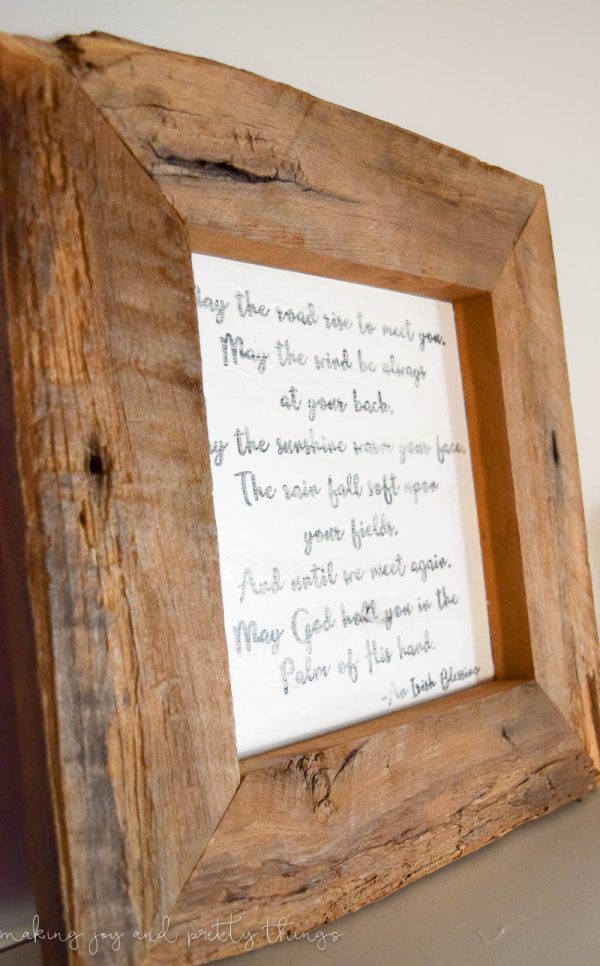 May the road rise to meet you.
May the wind be always
at your back.
May the sunshine warm your face,
The rain fall soft upon
your fields.
And until we meet again,
May God hold you in the
Palm of His hand.
-An Irish Blessing
making joy and pretty things